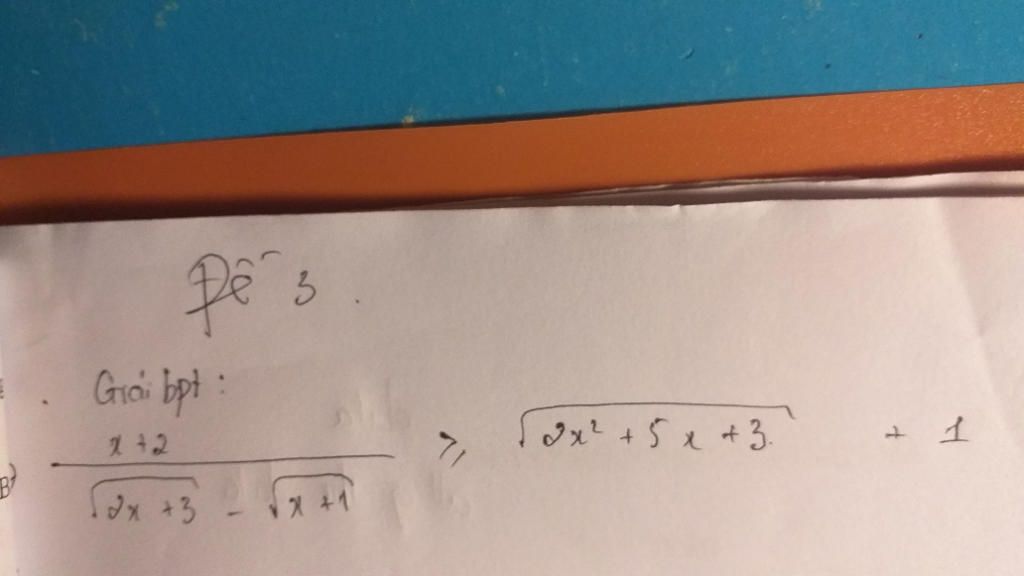 Đề 3.
. Giải bpt:
x+2 / √(2x+3) - √(x+1) ≥ √(2x² + 5x + 3) + 1
B)